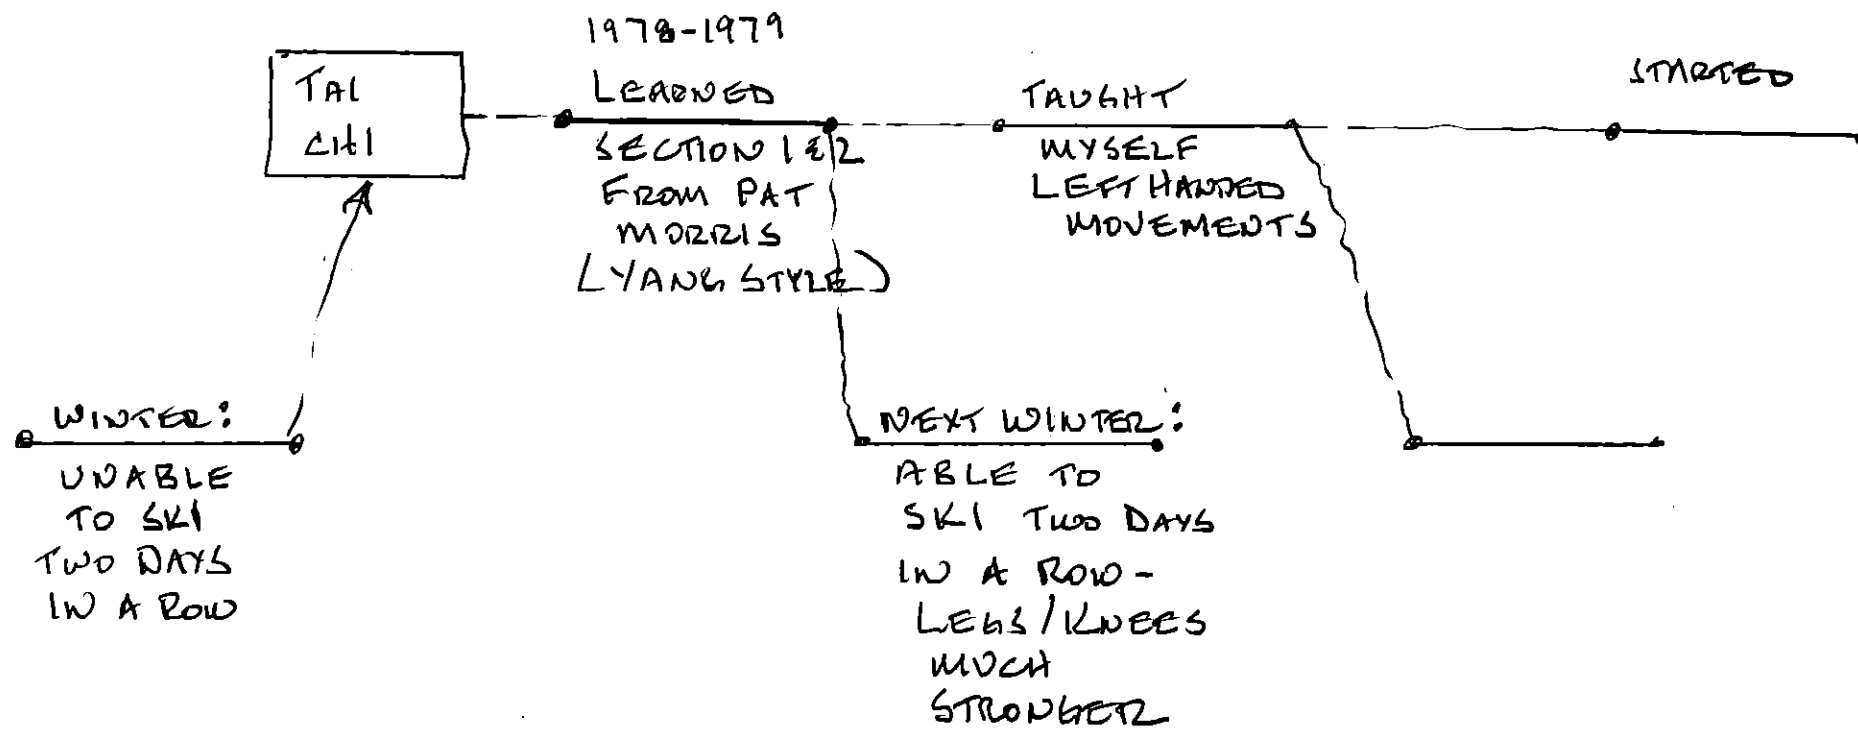 TAI
CHI
1978-1979
LEARNED
SECTION 1 & 2
FROM PAT
MORRIS
(YANG STYLE)
TAUGHT
MYSELF
LEFT HANDED
MOVEMENTS
STARTED
WINTER:
UNABLE
TO SKI
TWO DAYS
IN A ROW
NEXT WINTER:
ABLE TO
SKI TWO DAYS
IN A ROW -
LEGS/KNEES
MUCH
STRONGER